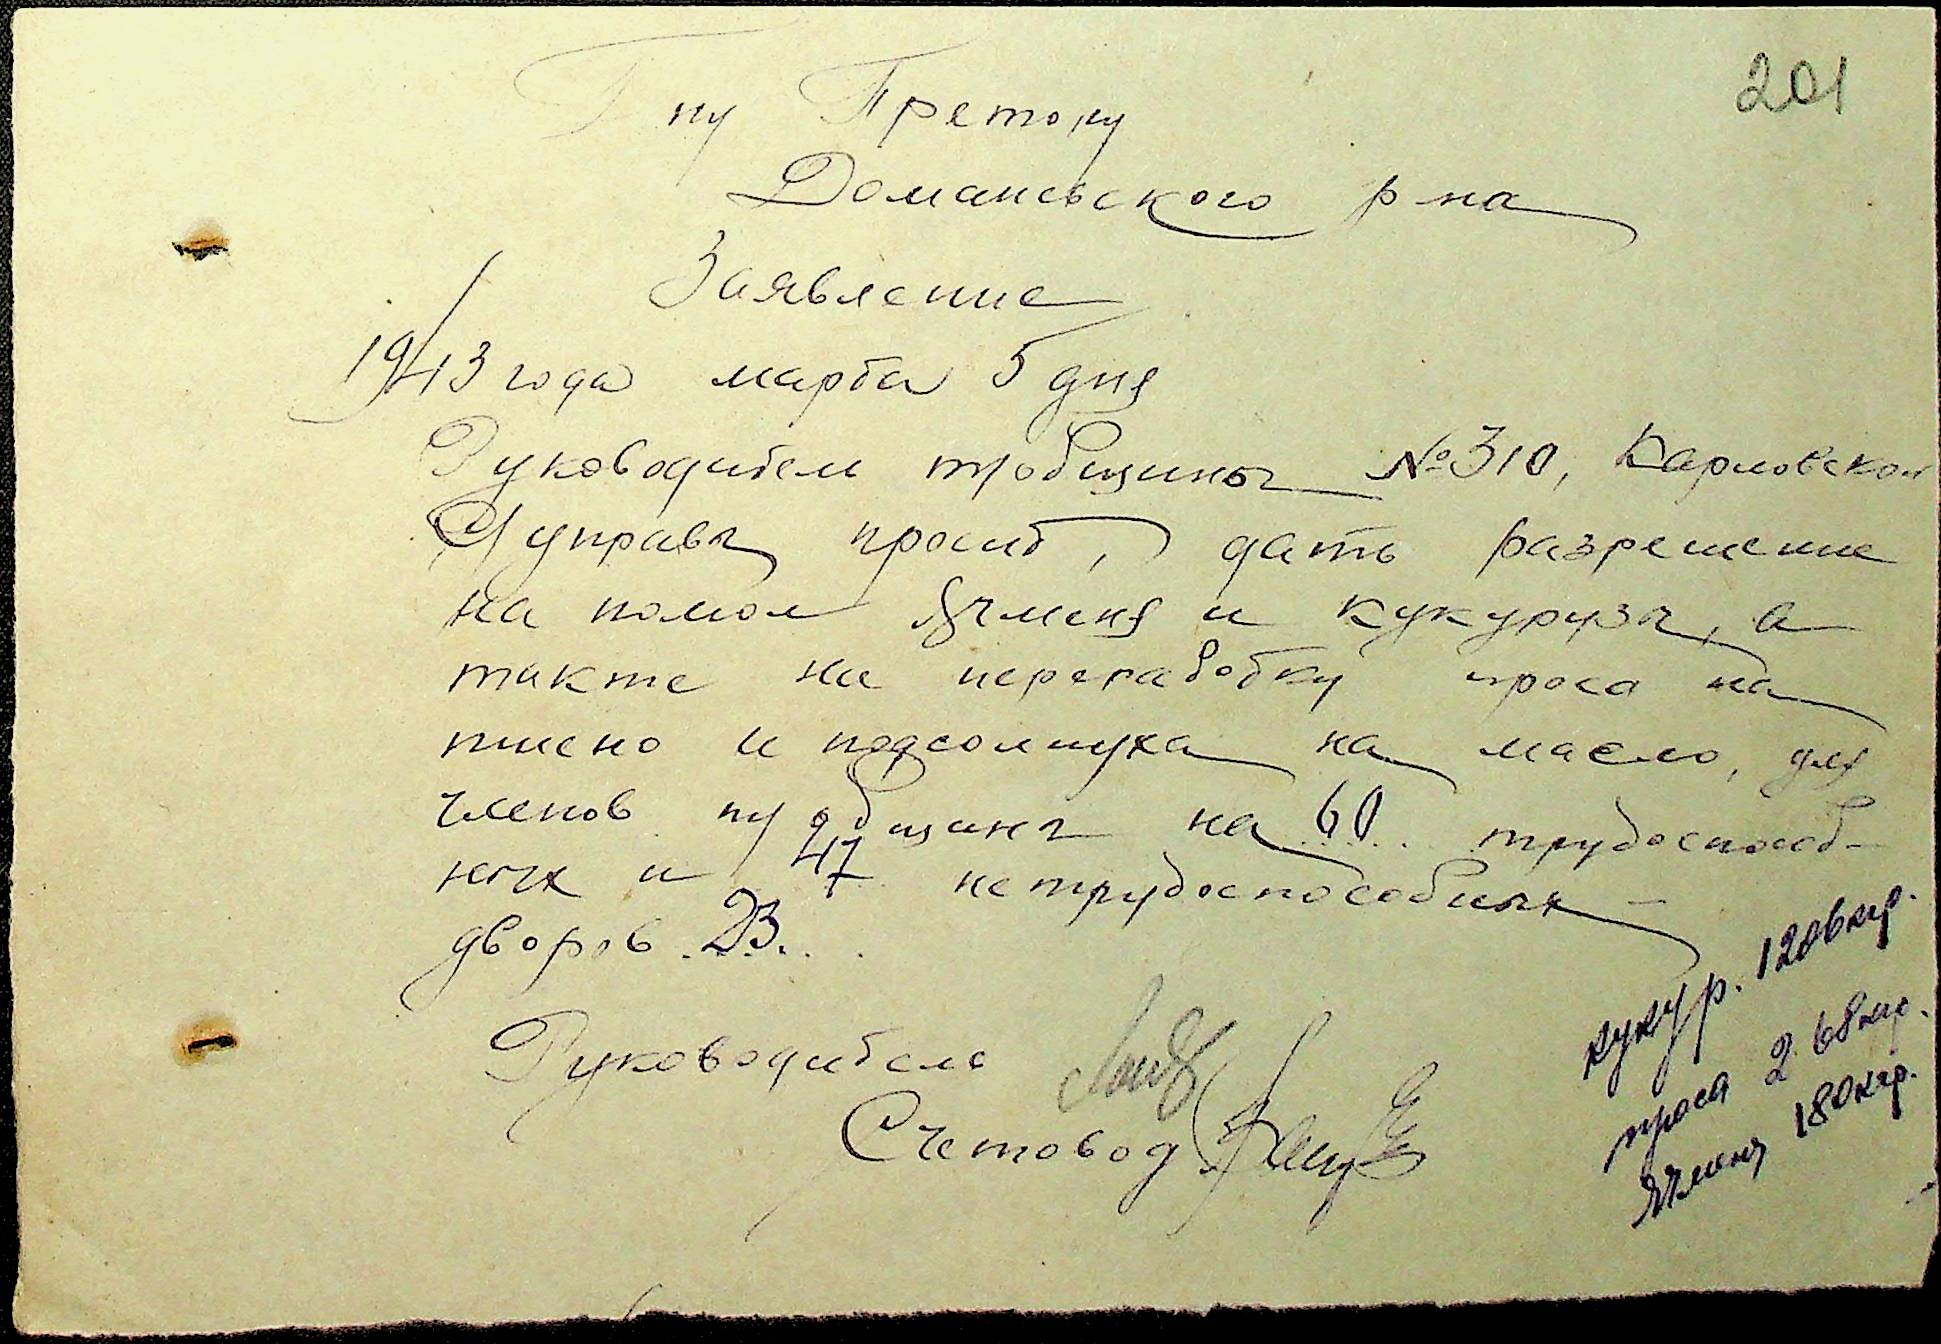 201
Г ну Претору
Доманевского р на
Заявление
1943 года марта 5 дня
Руководители тробщины № 310, Карловской
управы просит, дать разрешение
на помол ячменя и кукурузы, а
также на переработку проса на
пшено и подсолнуха на масло, для
членов общины на 60 трудоспособ-
ных и 47 нетрудоспособных -
дворов 23...
Руководитель
Счетовод
кукур. 1206 кгр.
проса 268 кгр.
Ячменя 180 кгр.